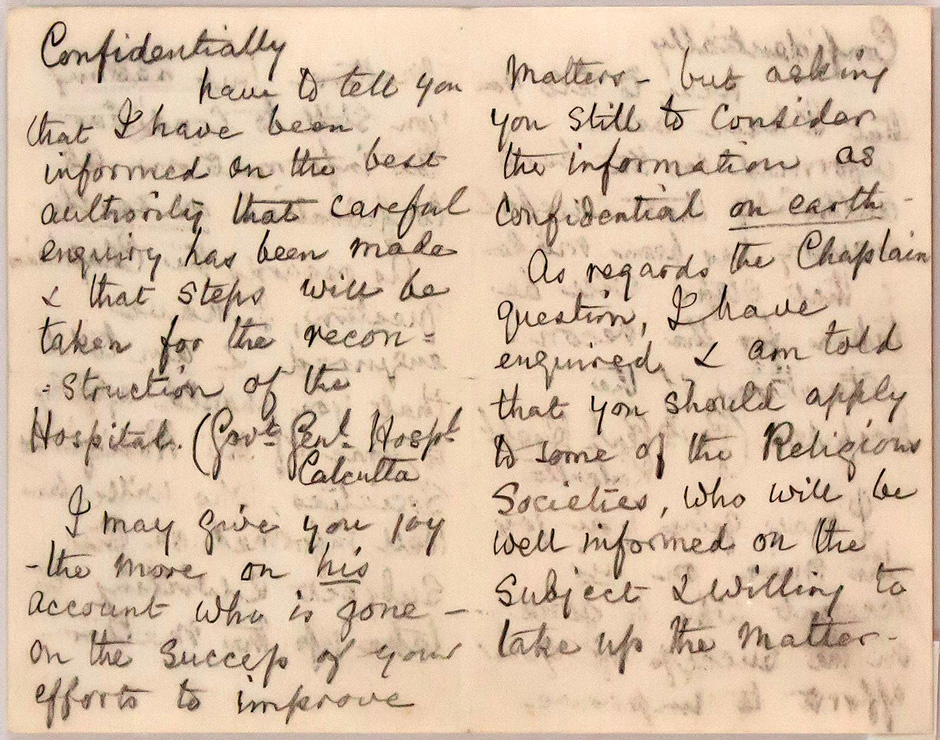 Confidentially
have to tell you
that I have been
informed on the best
authority that careful
enquiry has been made
& that steps will be
taken for the recon=
=struction of the
Hospital. (Govt Genl Hospl
Calcutta
I may give you joy
-the more on his
account who is gone -
on the success of your
efforts to improve
Matters - but asking
you still to consider
the information as
Confidential on earth -
As regards the Chaplain
question, I have
enquired, & am told
that you should apply
to some of the Religious
Societies, who will be
well informed on the
Subject & willing to
take up the matter -